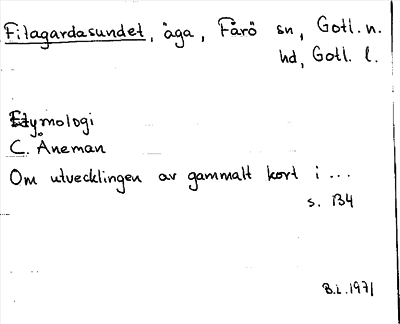 Filagardasundet, äga, Fårö sn, Gotl. n.
hd, Gotl. l.
Etymologi
C. Åneman
Om utvecklingen av gammalt kort i ...
s. 134
B.i. 1971